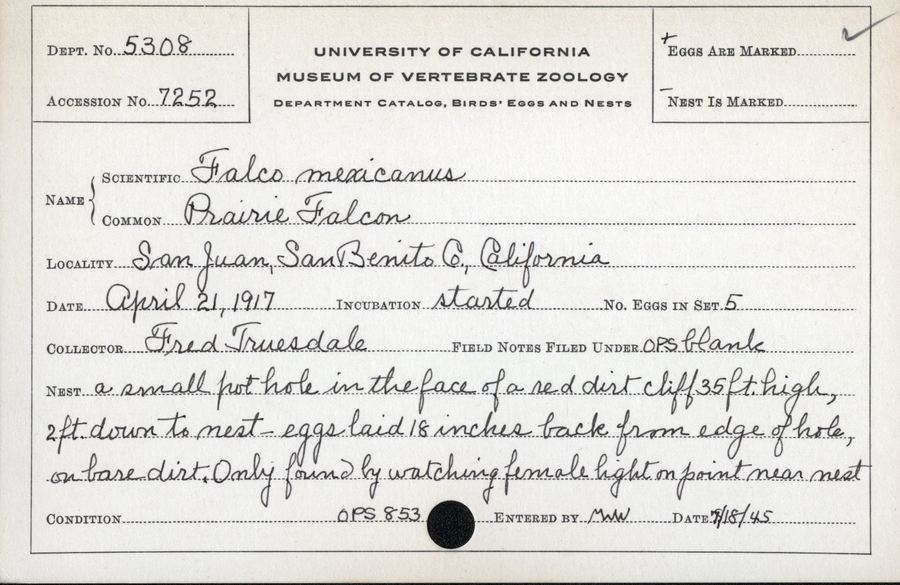 DEPT. No. 5308
ACCESSION No. 7252
UNIVERSITY OF CALIFORNIA
MUSEUM OF VERTEBRATE ZOOLOGY
DEPARTMENT CATALOG, BIRDS' EGGS AND NESTS
+ EGGS ARE MARKED ✓
- NEST IS MARKED
NAME { SCIENTIFIC Falco mexicanus
COMMON Prairie Falcon
LOCALITY San Juan, San Benito Co, California
DATE April 21, 1917 INCUBATION started NO. EGGS IN SET 5
COLLECTOR Fred Truesdale FIELD NOTES FILED UNDER OPS blank
NEST a small pot hole in the face of a red dirt cliff 35 ft. high,
2 ft. down to nest - eggs laid 18 inches back from edge of hole,
on bare dirt. Only found by watching female light on point near nest
CONDITION OPS 853 ENTERED BY MWW DATE 7/18/45